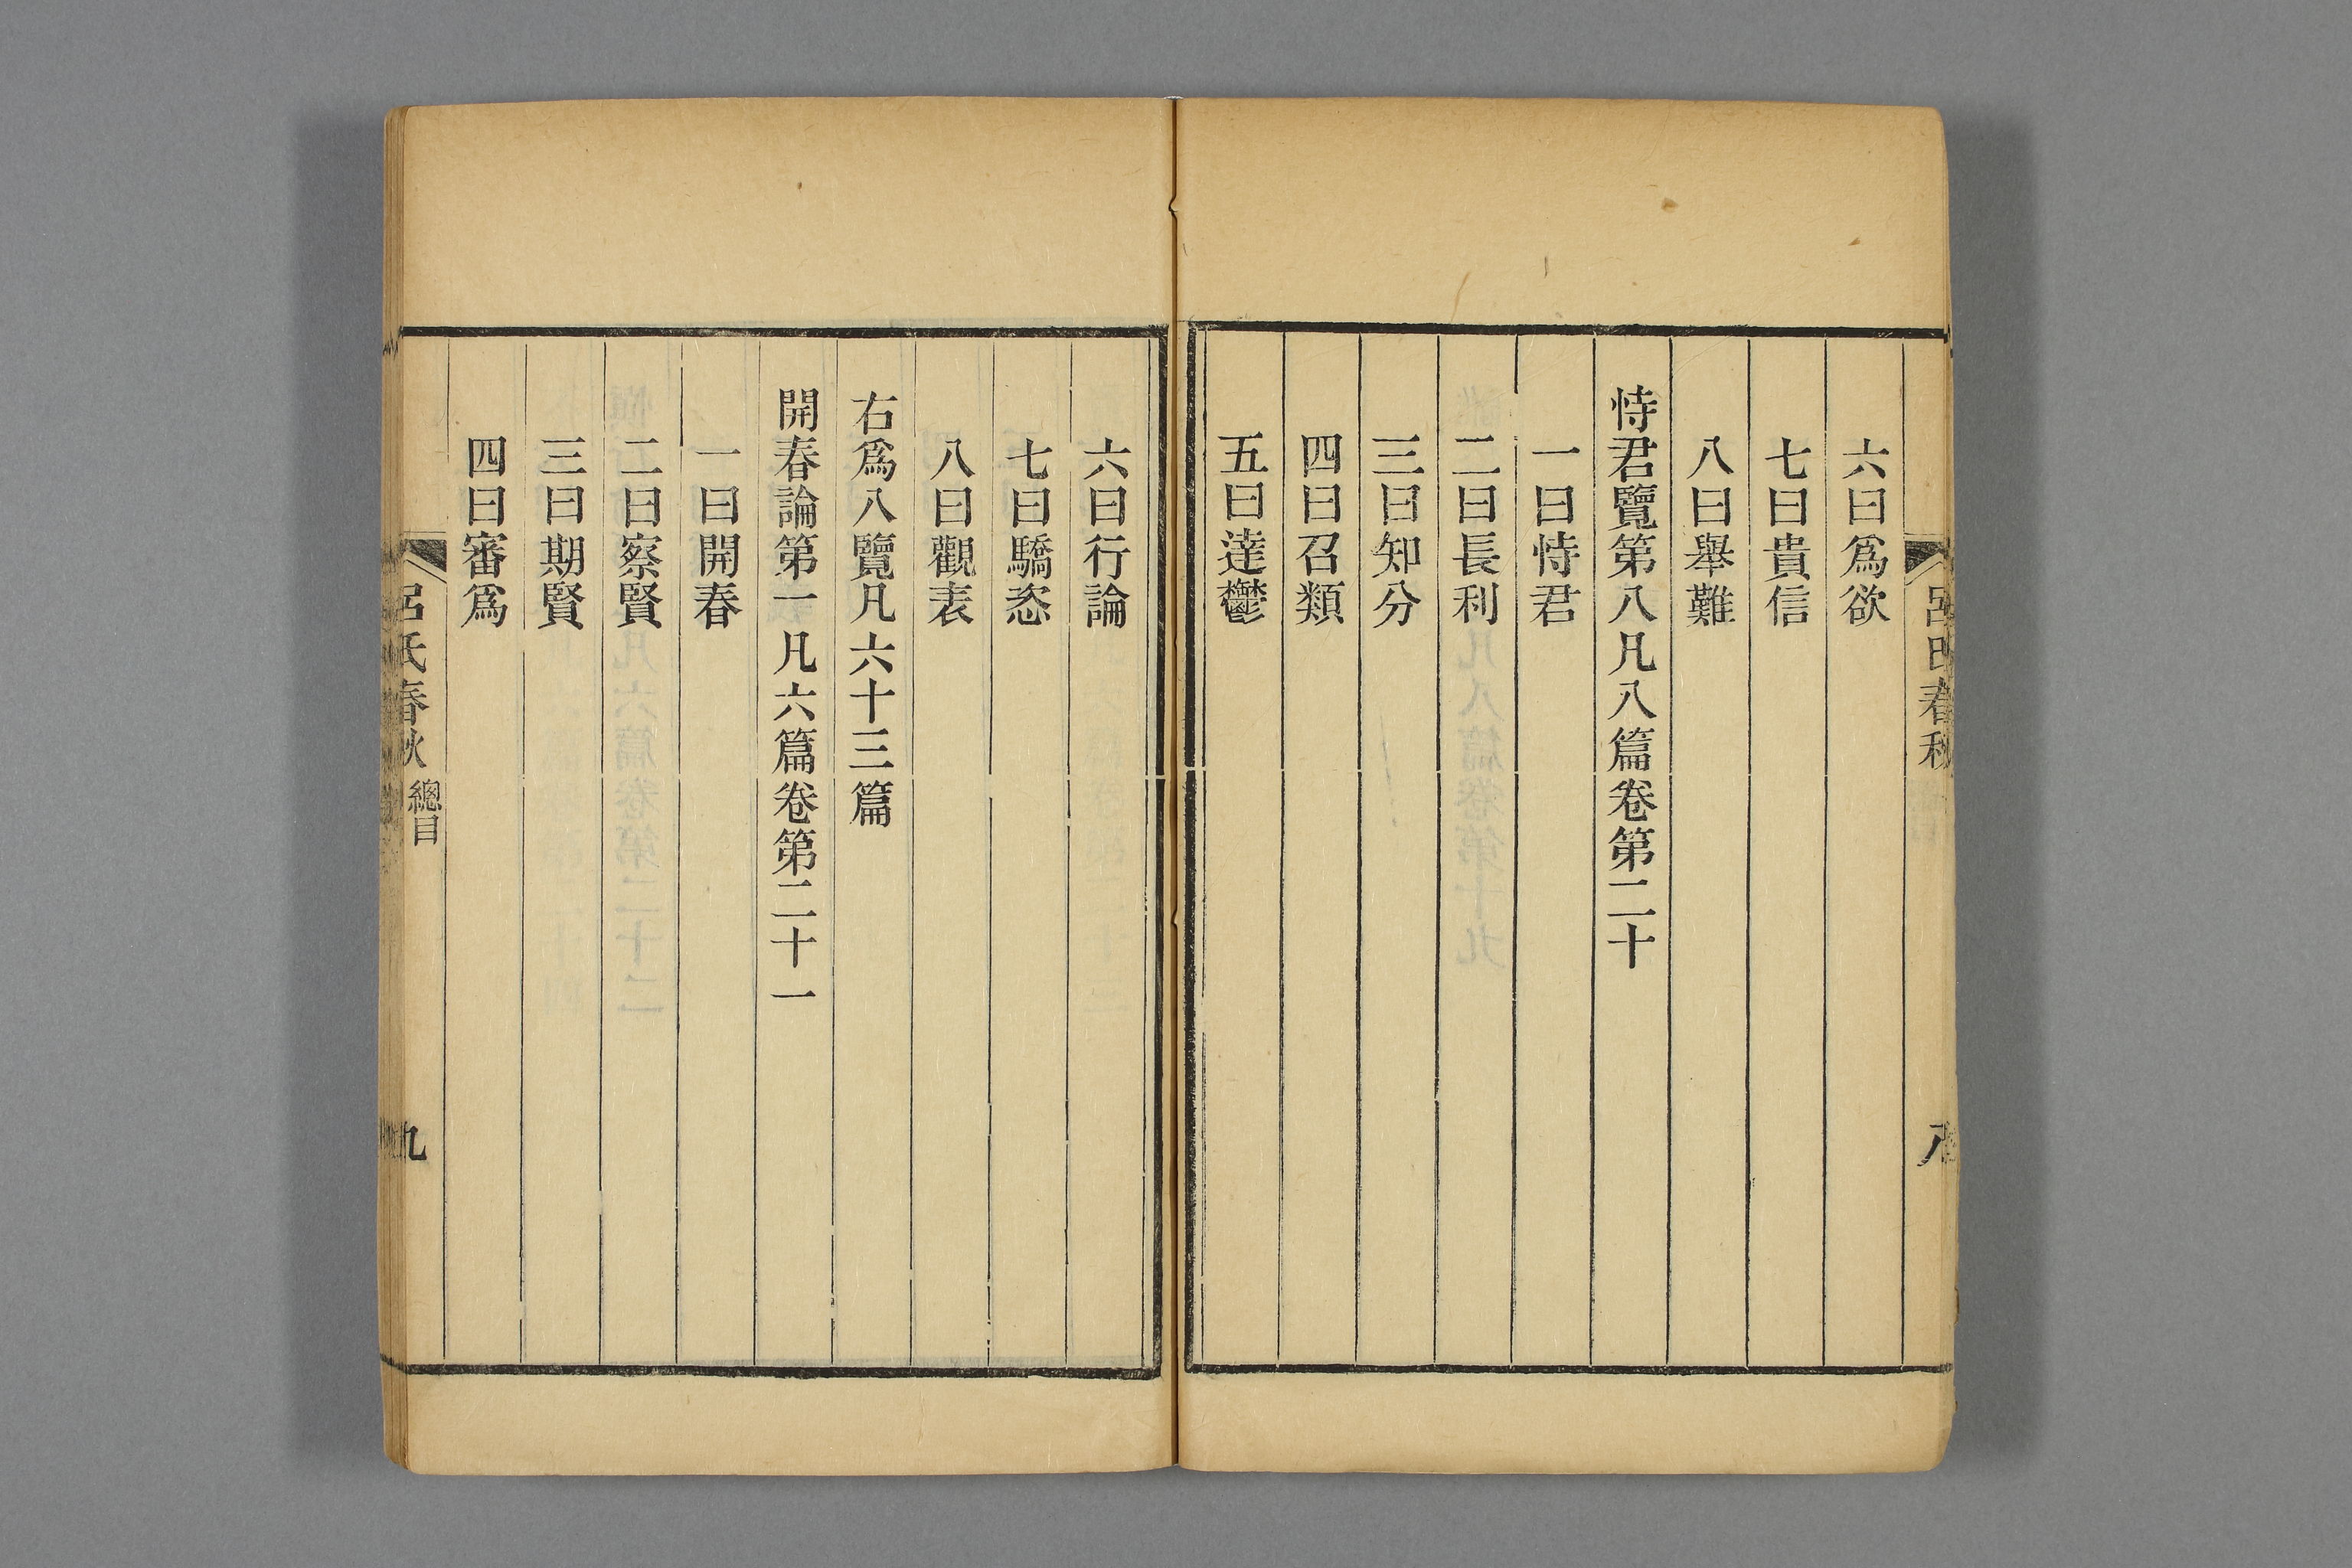 六曰爲欲
七曰貴信
八曰舉難
恃君覽第八凡八篇卷第二十
一曰恃君
二曰長利
三曰知分
四曰召類
五曰達鬱
六曰行論
七曰驕恣
八曰觀表
右爲八覽凡六十三篇
開春論第一凡六篇卷第二十一
一曰開春
二曰察賢
三曰期賢
四曰審爲
呂氏春秋
八
呂氏春秋 總目
九